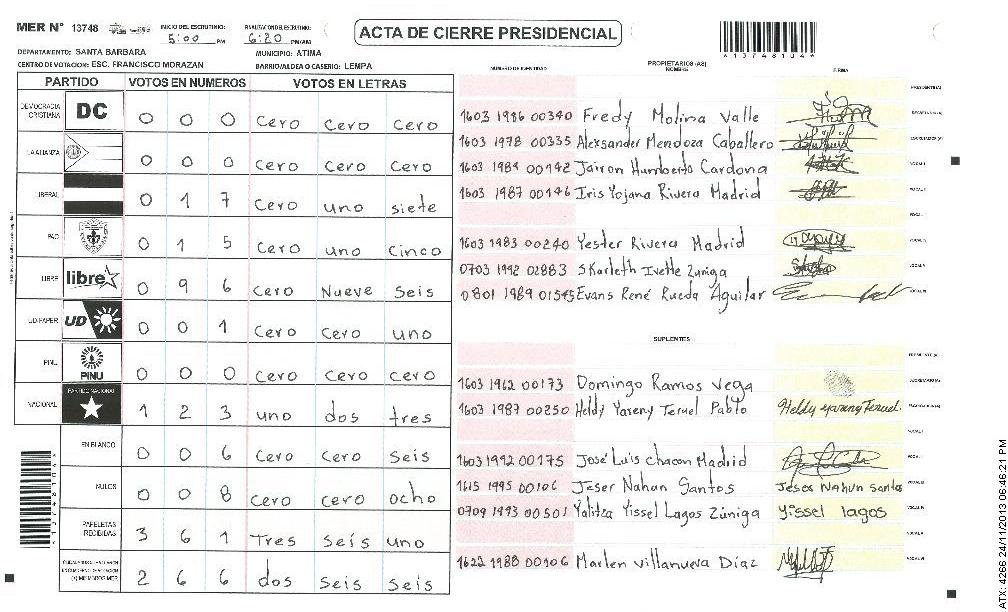 MER N° 13748 INICIO DEL ESCRUTINIO: 5:00 PM FINALIZACION DEL ESCRUTINIO: 6:20 PM/AM ACTA DE CIERRE PRESIDENCIAL *13748104*
DEPARTAMENTO: SANTA BARBARA MUNICIPIO: ATIMA
CENTRO DE VOTACION: ESC. FRANCISCO MORAZAN BARRIO/ALDEA O CASERIO: LEMPA
PARTIDO VOTOS EN NUMEROS VOTOS EN LETRAS
DEMOCRACIA CRISTIANA DC 0 0 0 cero cero cero
LA ALIANZA 0 0 0 cero cero cero
LIBERAL 0 1 7 cero uno siete
PAC 0 1 5 cero uno cinco
LIBRE libre 0 9 6 cero Nueve Seis
UD-FAPER UD 0 0 1 cero cero uno
PINU PINU 0 0 0 cero cero cero
NACIONAL PARTIDO NACIONAL 1 2 3 uno dos tres
EN BLANCO 0 0 6 cero cero seis
NULOS 0 0 8 cero cero ocho
PAPELETAS RECIBIDAS 3 6 1 Tres Seis uno
2 6 6 dos seis seis
*13748104*
NUMERO DE IDENTIDAD PROPIETARIOS (AS) NOMBRE FIRMA
PRESIDENTE(A)
1603 1986 00340 Fredy Molina Valle SECRETARIO(A)
1603 1978 00335 Alexsander Mendoza Caballero ESCRUTADOR(A)
1603 1984 00142 Jairon Humberto Cardona VOCAL I
1603 1987 00146 Iris Yojana Rivera Madrid VOCAL II
1603 1983 00240 Yester Rivera Madrid
0703 1992 02883 Skarleth Ivette Zuniga
0801 1989 01545 Evans René Rueda Aguilar
SUPLENTES
PRESIDENTE (A)
1603 1962 00173 Domingo Ramos Vega SECRETARIO(A)
1603 1987 00250 Heldy Yareny Teruel Pablo Heldy yareny Teruel. ESCRUTADOR(A)
1603 1992 00175 José Luis Chacon Madrid
1615 1995 00106 Jeser Nahun Santos Jeser Nahun Santos
0709 1993 00501 Yalitza Yissel Lagos Zúniga Yissel lagos
1622 1988 00106 Marlen Villanueva Díaz
ATX: 4266 24/11/2013 06:46:21 PM